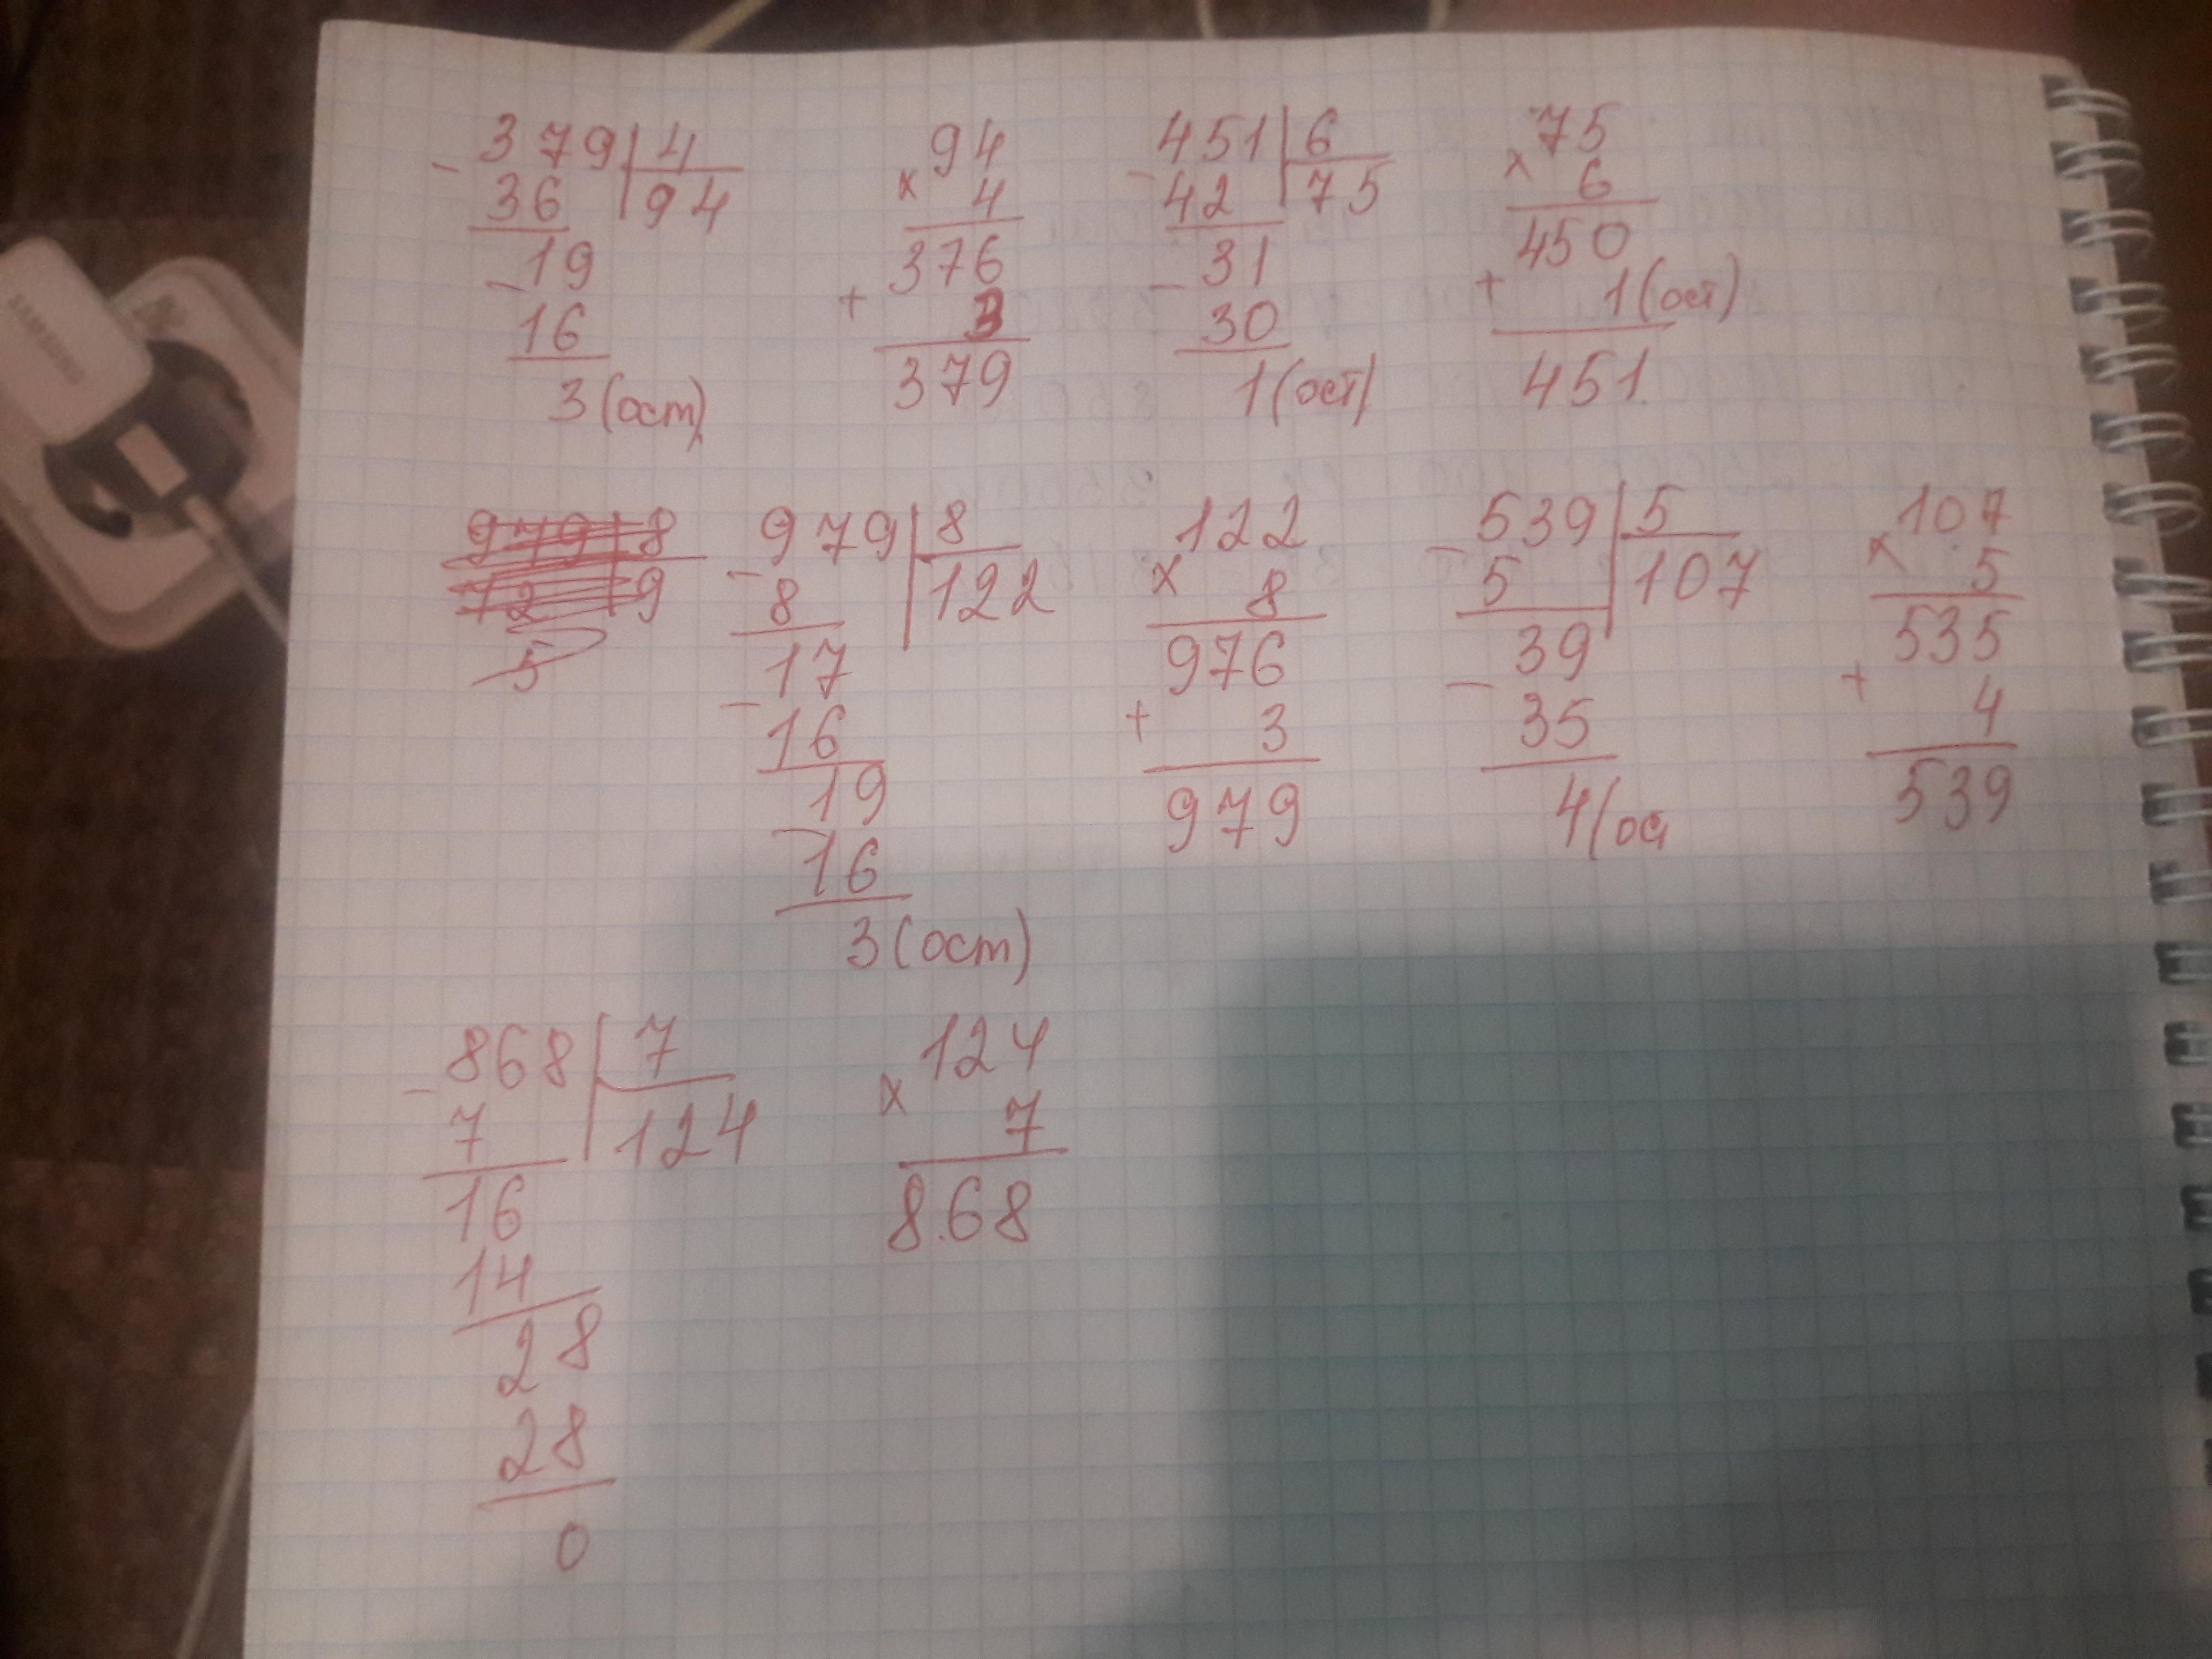 SAMSUNG
- 379 | 4
36 | 94
- 19
16
3 (ост)
× 94
4
376
+ 3
379
- 451 | 6
42 | 75
- 31
30
1 (ост)
× 75
6
450
+ 1 (ост)
451
979 | 8
72 | 9
5
- 979 | 8
8 | 122
17
- 16
19
- 16
3 (ост)
122
× 8
976
+ 3
979
- 539 | 5
5 | 107
39
- 35
4 (ос
× 107
5
535
+ 4
539
- 868 | 7
7 | 124
16
14
28
28
0
124
× 7
8.68